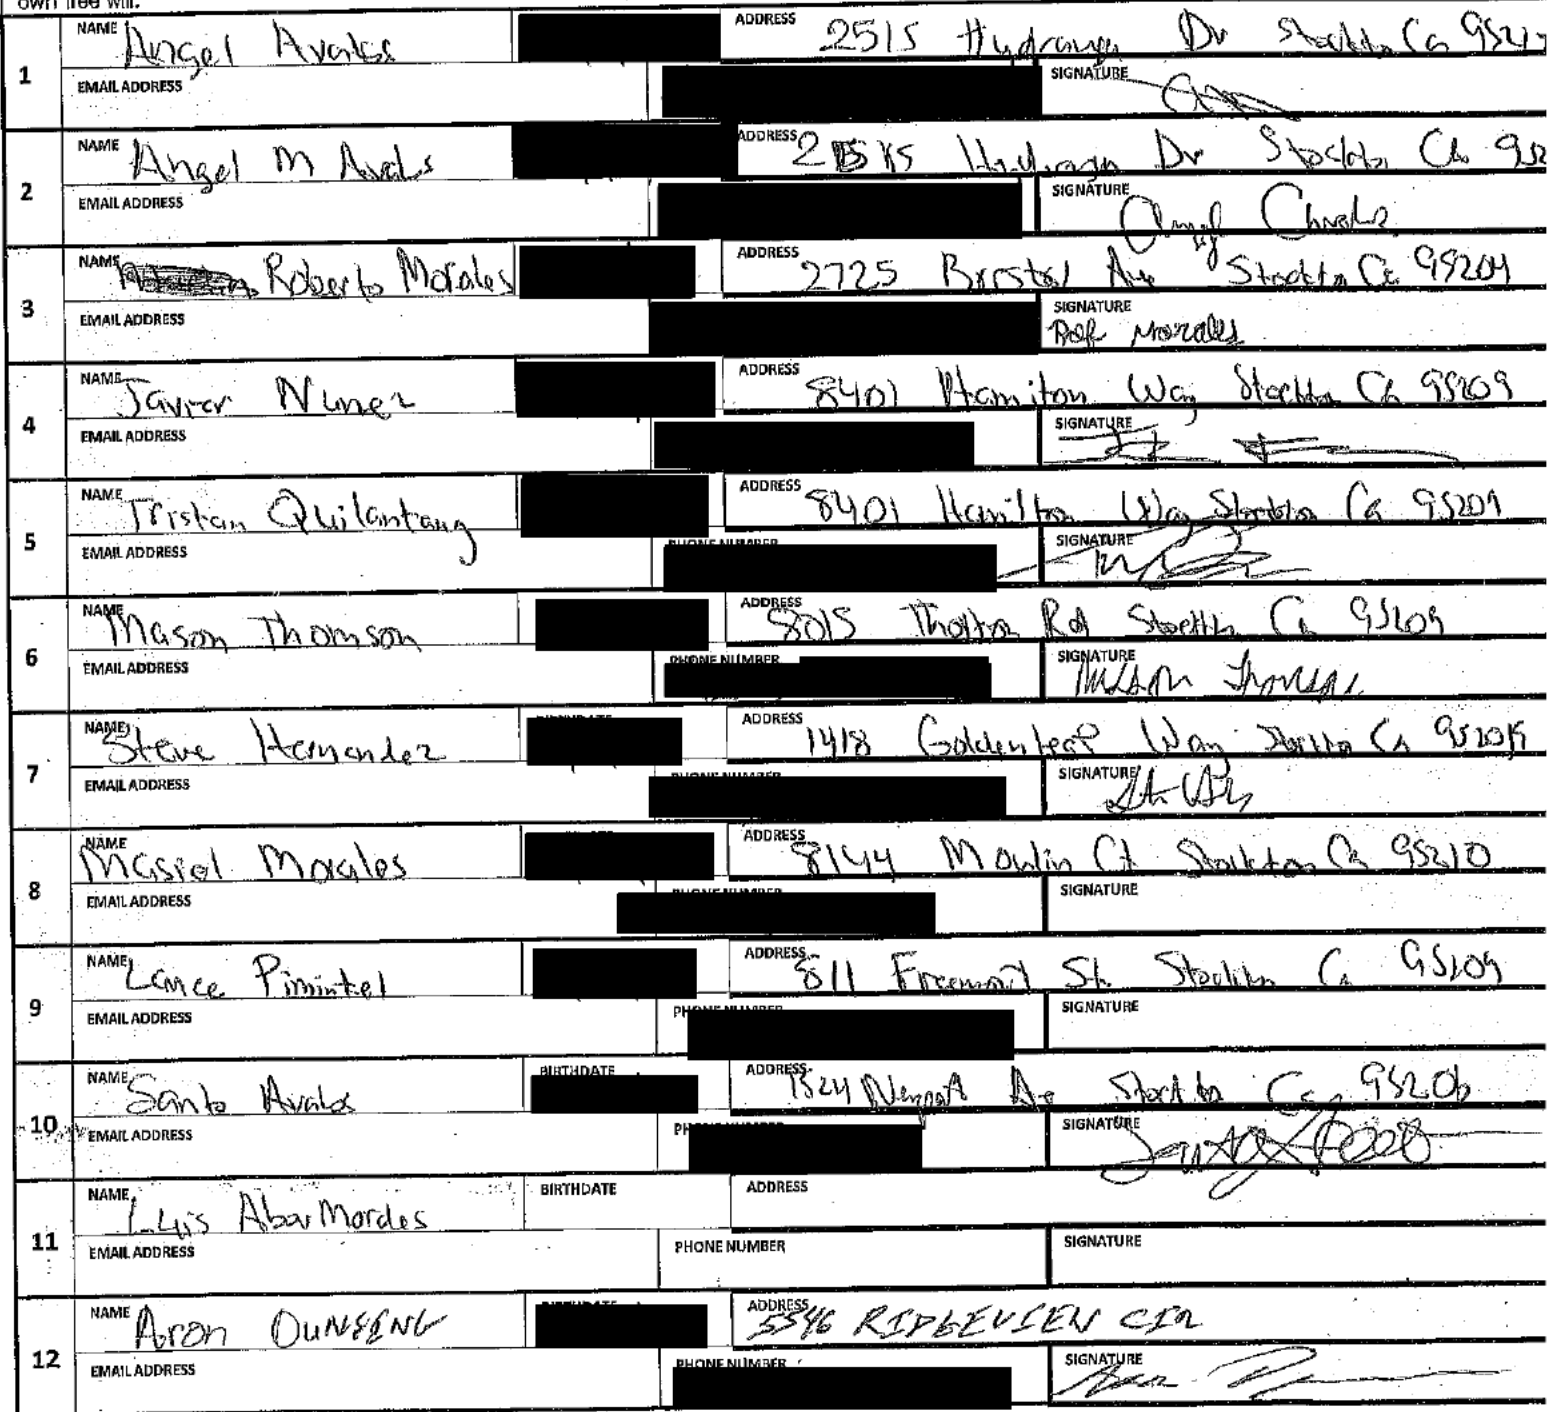 own free will.
NAME Angel Avalos ADDRESS 2515 Hydrangea Dr Stockton Ca 9521
1
EMAIL ADDRESS SIGNATURE
NAME Angel M Avalos ADDRESS Dr Stockton Ca 952
2
EMAIL ADDRESS SIGNATURE
NAME Roberto Morales ADDRESS 2725 Bristol Ave Stockton Ca 95204
3
EMAIL ADDRESS SIGNATURE Rob Morales
NAME Javier Nunez ADDRESS 8401 Hamiton Way Stockton Ca 95209
4
EMAIL ADDRESS SIGNATURE
NAME Tristan Quilantang ADDRESS 8401 Hamilton Way Stockton Ca 95209
5
EMAIL ADDRESS PHONE NUMBER SIGNATURE
NAME Mason Thomson ADDRESS 8015 Rd Stockton Ca 95209
6
EMAIL ADDRESS PHONE NUMBER SIGNATURE Mason Thomson
NAME Steve Hernandez BIRTHDATE ADDRESS 1418 Goldenleaf Way Stockton Ca
7
EMAIL ADDRESS PHONE NUMBER SIGNATURE
NAME Masiel Morales ADDRESS 8144 Moulin Ct Stockton Ca 95210
8
EMAIL ADDRESS PHONE NUMBER SIGNATURE
NAME Lance Pimintel ADDRESS 811 Freemont St. Stockton Ca 95209
9
EMAIL ADDRESS PHONE NUMBER SIGNATURE
NAME Santo Avalos BIRTHDATE ADDRESS 1524 Newport Ave Stockton Ca, 95206
10
EMAIL ADDRESS PHONE NUMBER SIGNATURE
NAME Luis Abar Morales BIRTHDATE ADDRESS
11
EMAIL ADDRESS PHONE NUMBER SIGNATURE
NAME Aron DUNSING BIRTHDATE ADDRESS 5546 RIDGEVIEW CIR
12
EMAIL ADDRESS PHONE NUMBER SIGNATURE